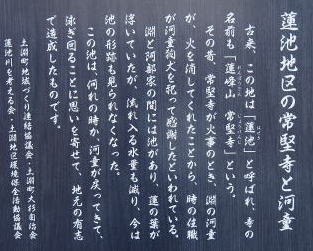 蓮池地区の常堅寺と河童
古来、この地は「蓮池」と呼ばれ、寺の
名前も「蓮峰山 常堅寺」という。
その昔、常堅寺が火事のとき、淵の河童
が、火を消してくれたことから、時の住職
が河童狛犬を祀って感謝したといわれている。
淵と阿部家の間には池があり、蓮の葉が
浮いていたが、流れ入る水量も減り、今は
池の形跡も見られなくなった。
この池は、何れの時か、河童が戻ってきて、
泳ぎ回ることに思いを寄せて、地元の有志
で造成したものです。
土淵町地域づくり連絡協議会・土淵町大杉自治会
蓮池川を考える会・土淵地区環境保全活動協議会